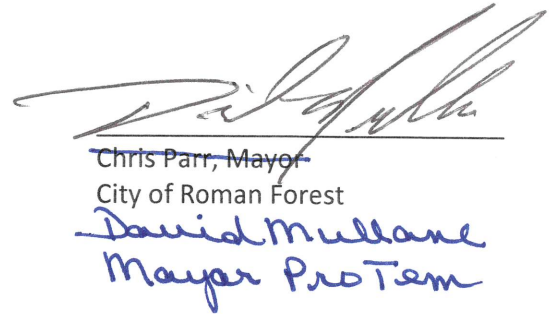 Chris Parr, Mayor
City of Roman Forest
David Mullane
Mayor ProTem